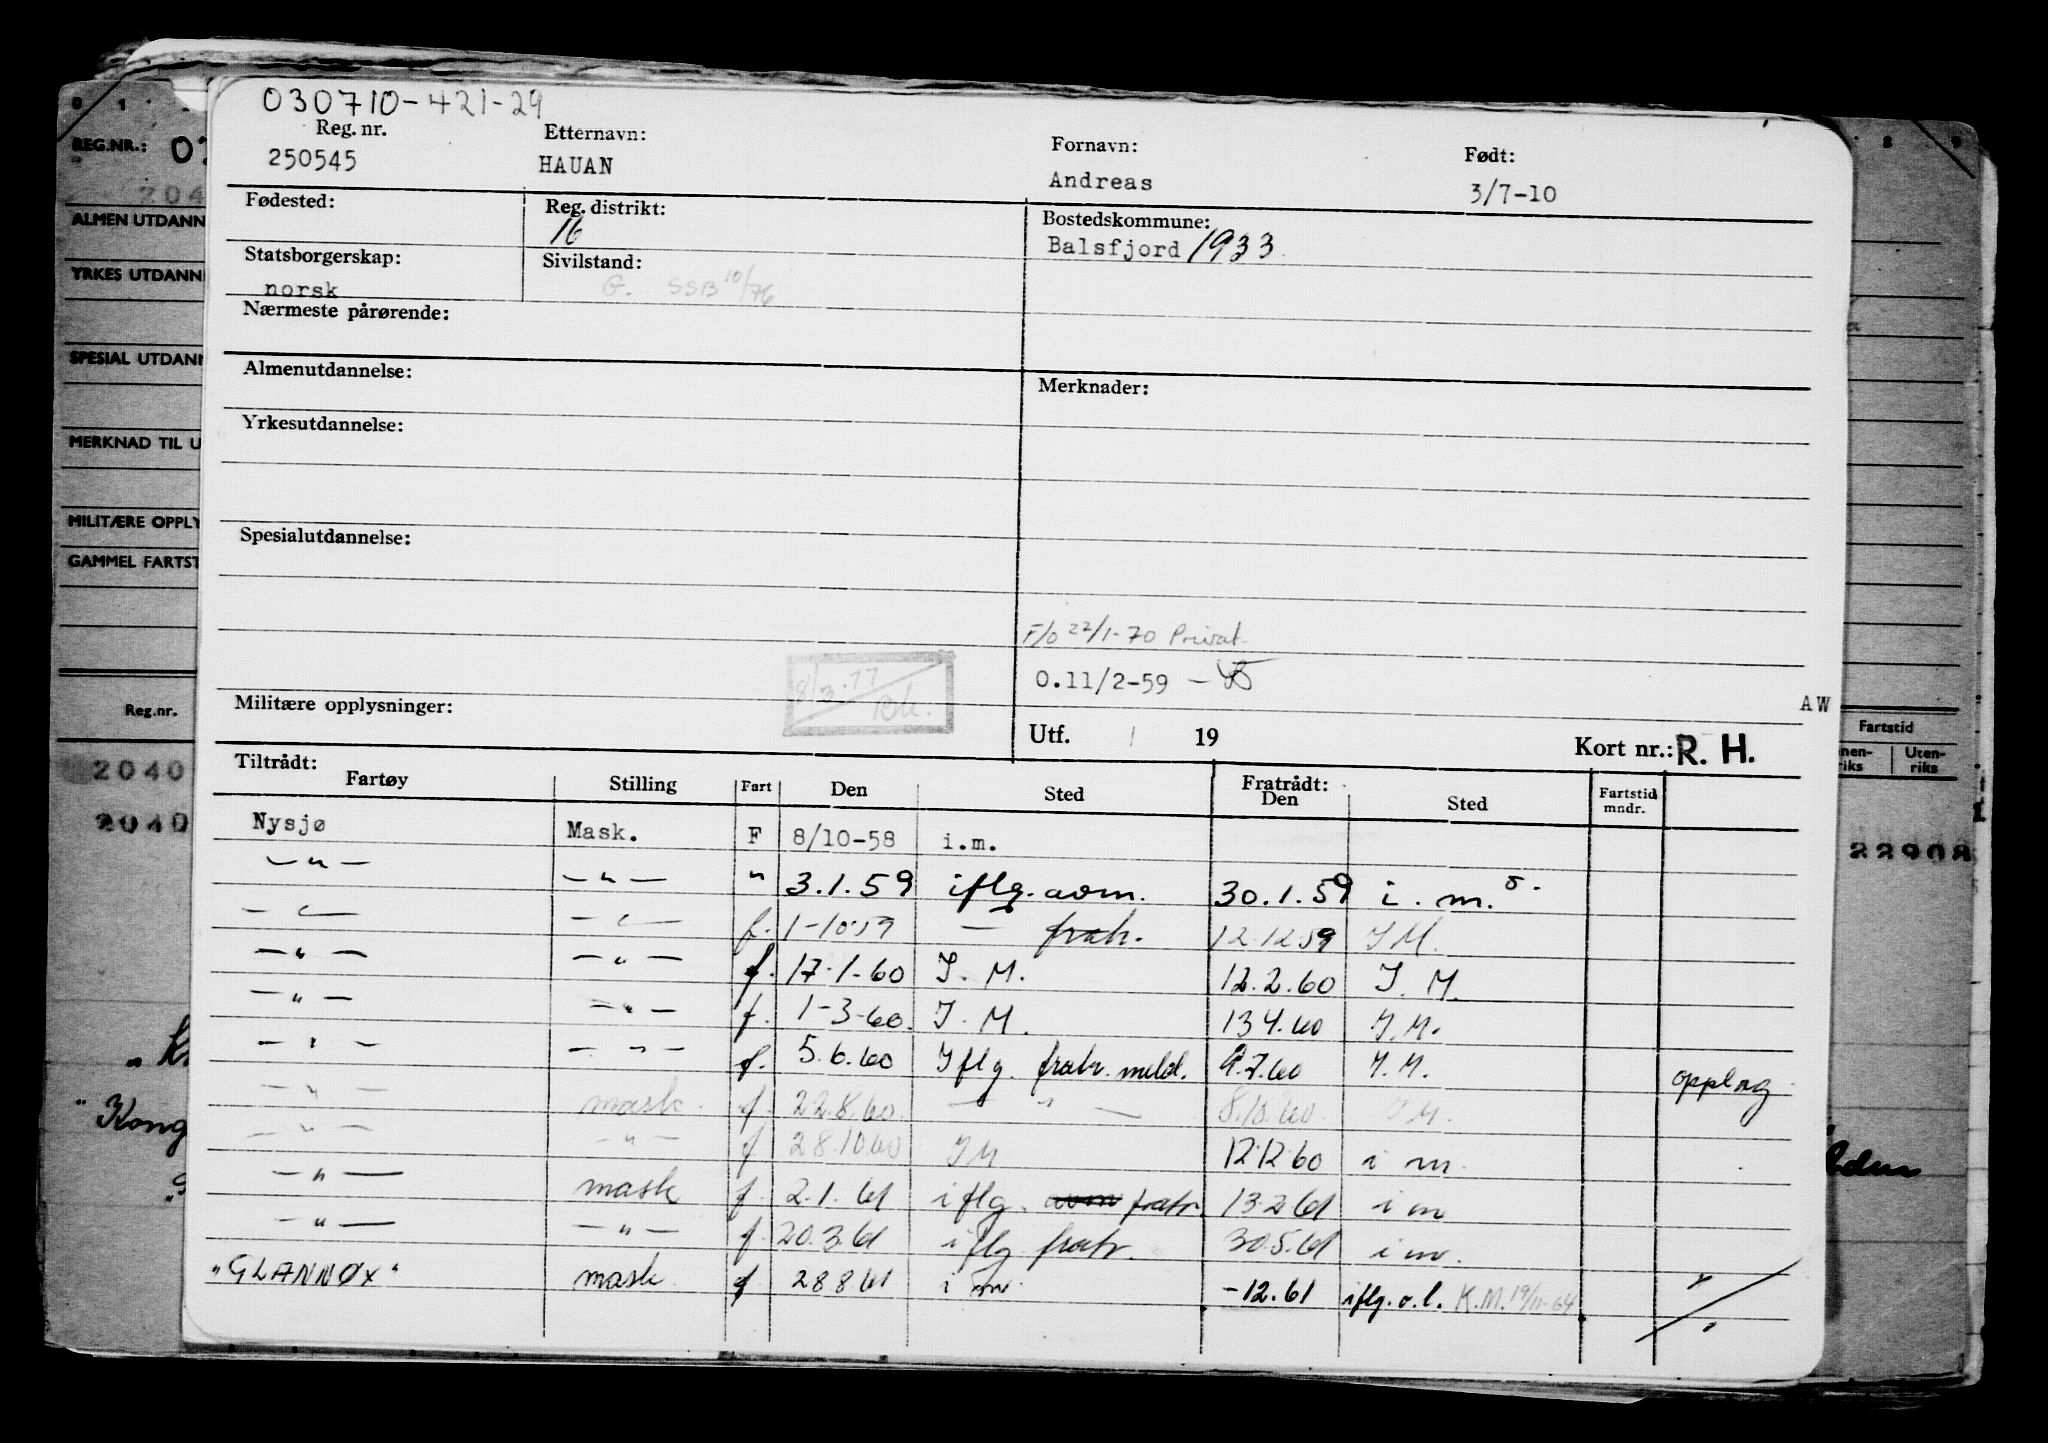 030710-421-29
Reg. nr. Etternavn: Fornavn: Født:
250545 HAUAN Andreas 3/7-10
Fødested: Reg. distrikt: Bostedskommune:
16 Balsfjord 1933
Statsborgerskap: Sivilstand:
norsk G. SSB 10/76
Nærmeste pårørende:
Almenutdannelse: Merknader:
Yrkesutdannelse:
Spesialutdannelse:
F/o 22/1-70 Privat
8/3.77 O.11/2-59 –
AW
Militære opplysninger: Utf. / 19 Kort nr.: R. H.
Tiltrådt: Fratrådt:
Fartøy Stilling Fart Den Sted Den Sted Fartstid mndr.
Nysjø Mask. F 8/10-58 i.m.
—"— —"— " 3.1.59 iflg. avm. 30.1.59 i.m.
—"— —"— f. 1-10-59 — fratr. 12.12.59 I M.
—"— —"— f. 17.1-60 I. M. 12.2.60 I. M.
—"— —"— f. 1-3-60. I. M. 13.4.60 I. M.
—"— —"— f. 5.6.60 Iflg. fratr. meld. 9.7.60 I. M. opplag
—"— mask. f. 22.8.60. —"— 8.10.60. I M.
—"— —"— f. 28.10.60 I M 12.12.60 i m.
—"— mask f. 2.1.61 iflg. avm fratr. 13.2.61 i m
—"— —"— f. 20.3.61 iflg fratr. 30.5.61 i m.
"GLANNØX" mask f 28 8 61 i m -12.61 iflg. o. l. K.M. 19/11-64
REG.NR.: 03
204
ALMEN UTDANN
YRKES UTDANN
SPESIAL UTDANN
MERKNAD TIL U
MILITÆRE OPPLY
GAMMEL FARTST
Reg.nr.
2040
2040
"Kong
Fartstid
nen-riks Uten-riks
22908